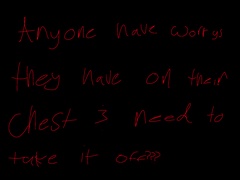 Anyone have worrys
they have on their
chest i need to
take it off???